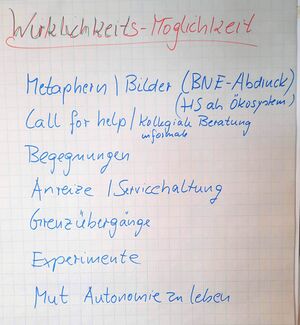 Wirklichkeits-Möglichkeit
Metaphern / Bilder (BNE-Abdruck)
(HS als Ökosystem)
Call for help / kollegiale Beratung
informale
Begegnungen
Anreize / Servicehaltung
Grenzübergänge
Experimente
Mut Autonomie zu leben